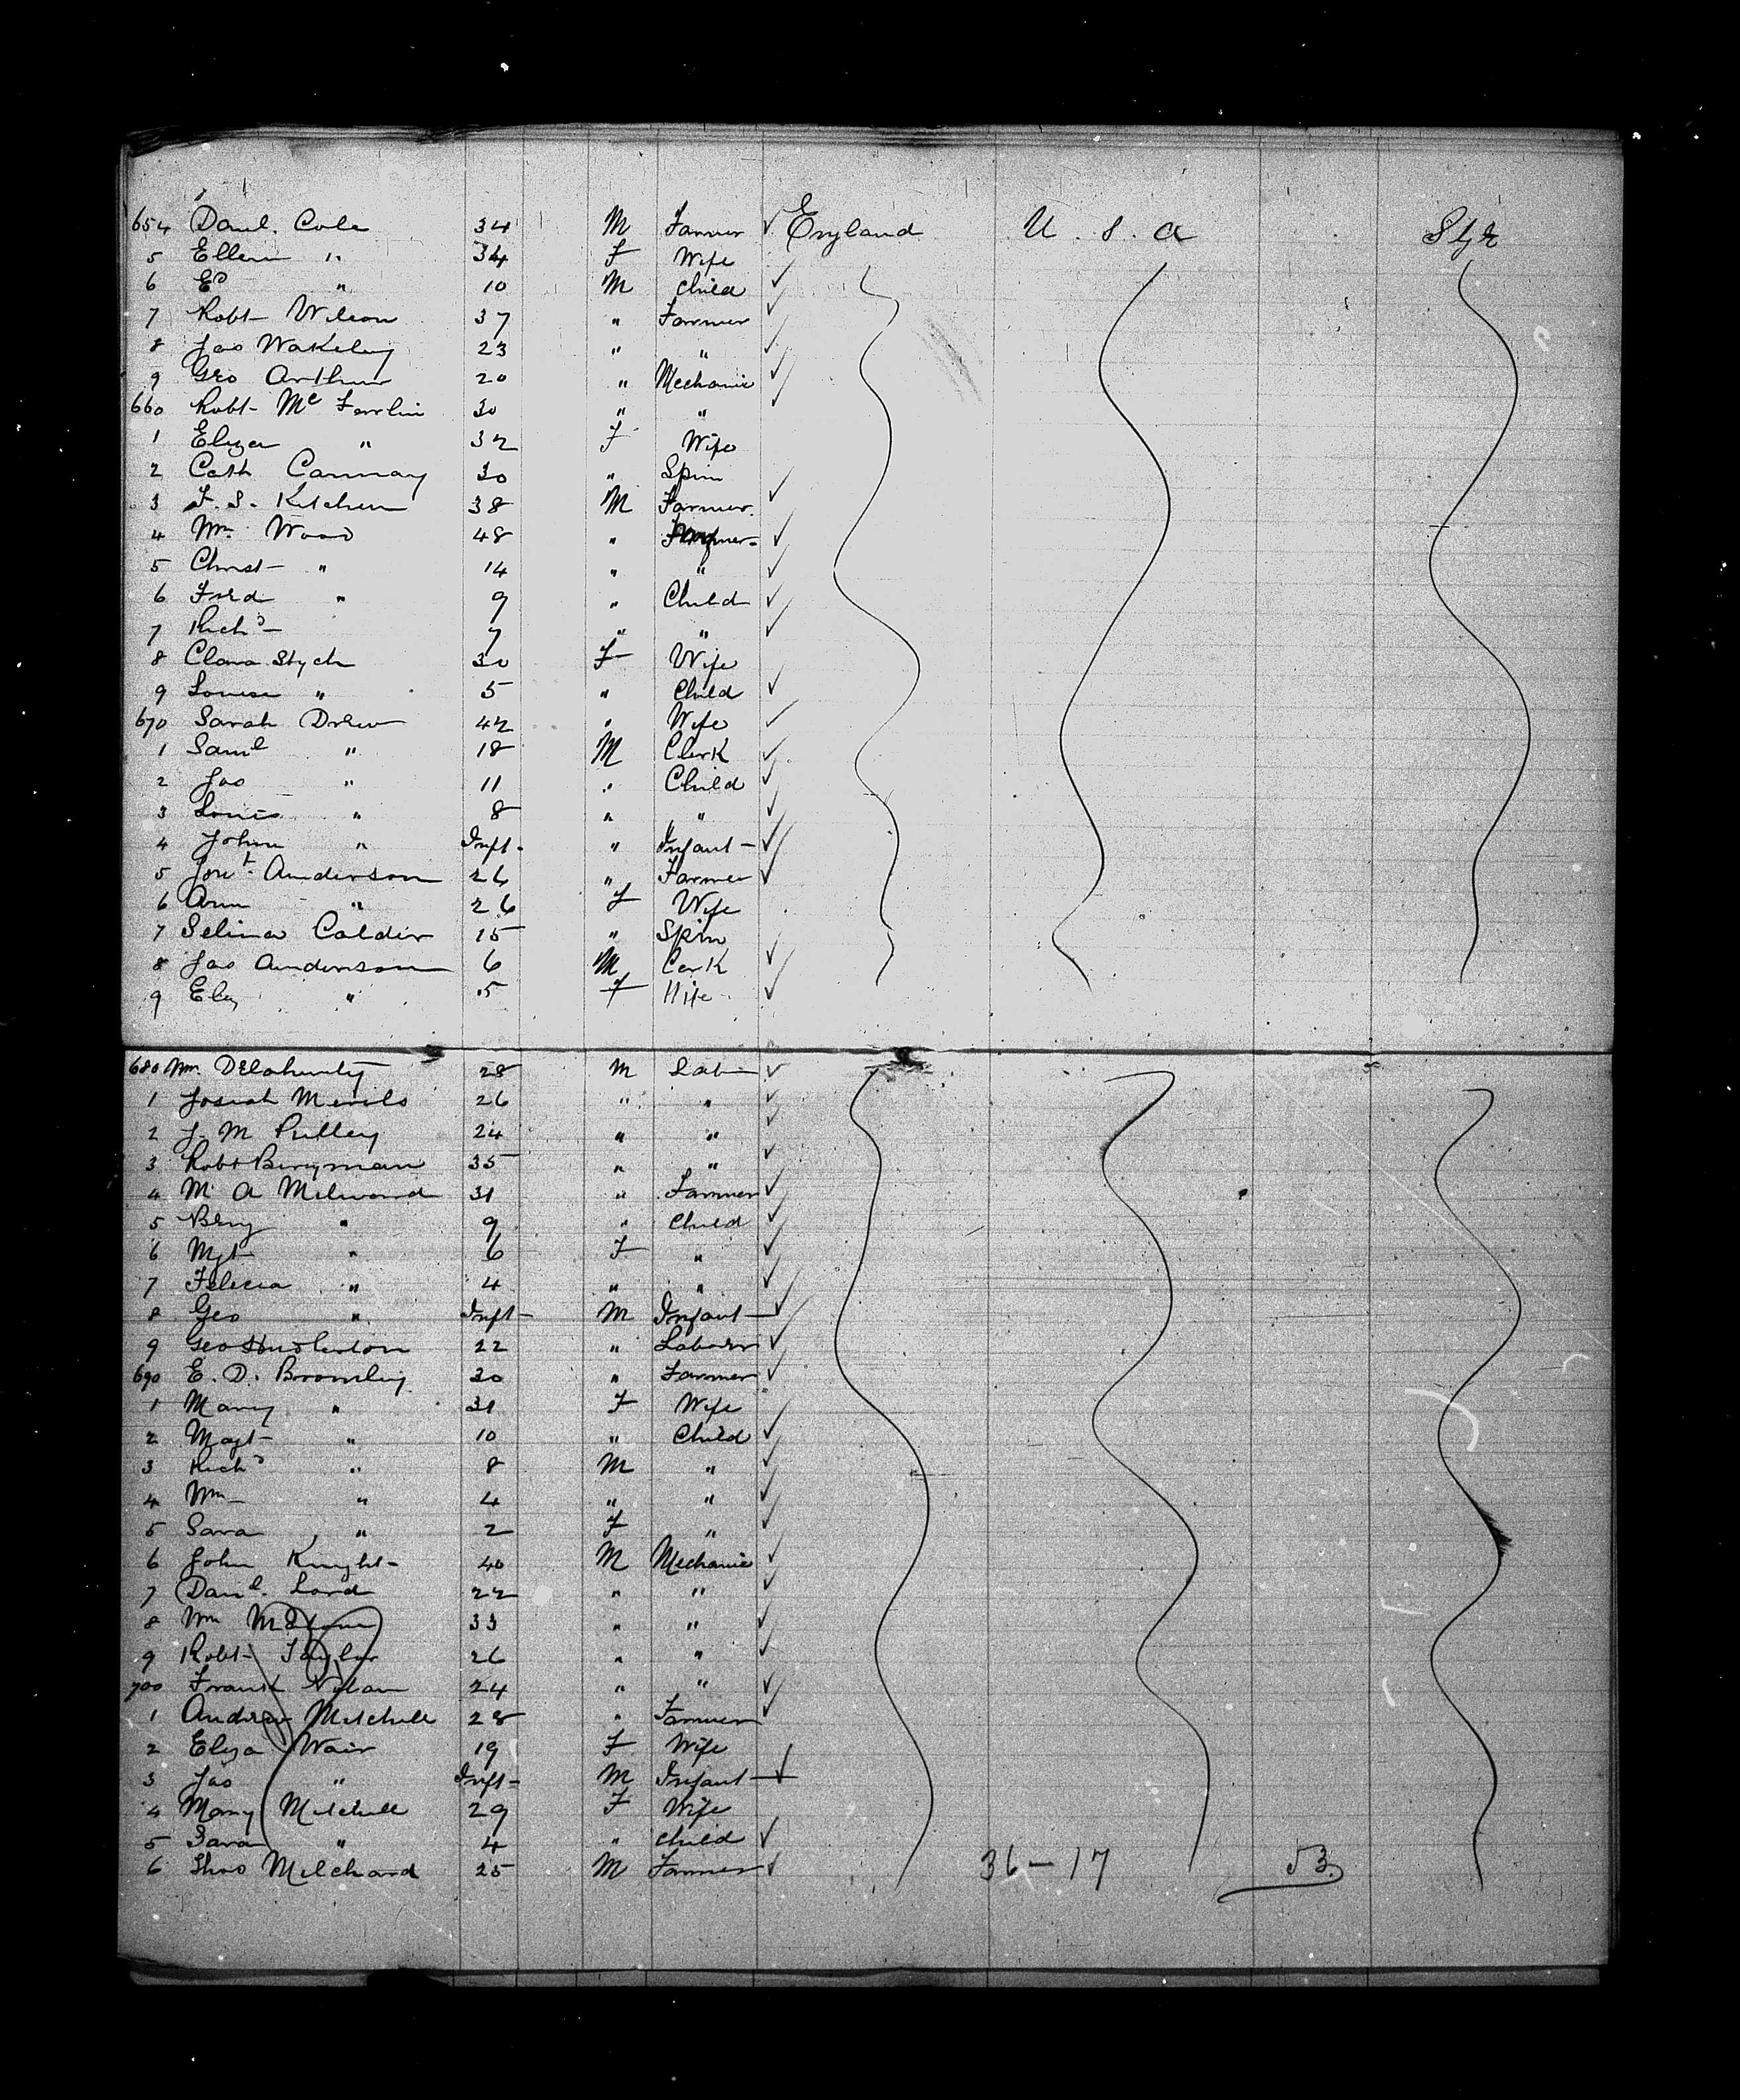 654 Danl. Cole 34 M Farmer ✓ England U. S. A Stge
5 Ellen " 34 F Wife
6 Ed " 10 M Child ✓
7 Robt Wilson 37 " Farmer ✓
8 Jas Wakeley 23 " " ✓
9 Geo Arthur 20 " Mechanic ✓
660 Robt Mc Farlin 30 " " ✓
1 Eliza " 32 F Wife
2 Cath Cannay 30 " Spin ✓
3 F. S. Kitchen 38 M Farmer ✓
4 Wm Wood 48 " Farmer ✓
5 Christ " 14 " " ✓
6 Fred " 9 " Child ✓
7 Richd 7 " " ✓
8 Clara Stych 30 F Wife
9 Louisa " 5 " Child ✓
670 Sarah Drew 42 " Wife ✓
1 Saml " 18 M Clerk ✓
2 Jas " 11 " Child ✓
3 Louis " 8 " " ✓
4 John " Inft " Infant ✓
5 Jont Anderson 26 " Farmer ✓
6 Ann " 26 F Wife
7 Selina Calder 15 " Spin
8 Jas Anderson 6 M Cerk ✓
9 Eliz " 5 F Wife ✓
680 Wm Delahunty 28 M Lab ✓
1 Josiah 26 " " ✓
2 J. M 24 " " ✓
3 Robt Bergman 35 " " ✓
4 M A Milward 31 " Farmer ✓
5 Benj " 9 " Child ✓
6 Mgt " 6 F " ✓
7 Felicia " 4 " " ✓
8 Geo " Inft M Infant ✓
9 Geo 22 " Laborer ✓
690 E. D. Bromley 30 " Farmer ✓
1 Mary " 31 F Wife
2 Magt " 10 " Child ✓
3 Richd " 8 M " ✓
4 Wm " 4 " " ✓
5 Sara " 2 F " ✓
6 John Knight 40 M Mechanic ✓
7 Danl. Lord 22 " " ✓
8 Wm 33 " " ✓
9 Robt Taylor 26 " " ✓
700 Frank Nolan 24 " " ✓
1 Andrew Mitchell 28 " Farmer ✓
2 Eliza Wair 19 F Wife
3 Jas " Inft M Infant ✓
4 Mary Mitchell 29 F Wife
5 Sara " 4 " Child ✓
6 Thos Milchard 25 M Farmer ✓ 36-17 53